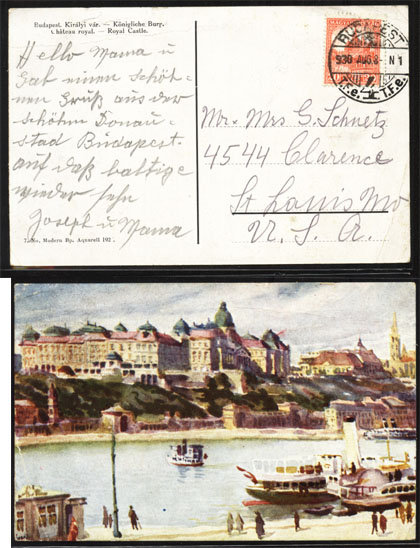 Budapest. Királyi vár. — Königliche Burg.
Château royal. — Royal Castle.
Hello Mama u
einen Schöt-
nen Gruß aus der
schöhn Donau-
stad Budapest.
auf daß baltige
wieder sehn
Joseph u Mama
Modern Bp. Aquarell 192
MAGYAR
BUDAPEST
930 AUG. 8 - N 1
T.F.e.
Mr. Mrs G. Schuetz
4544 Clarence
St Louis Mo
U. S. A.